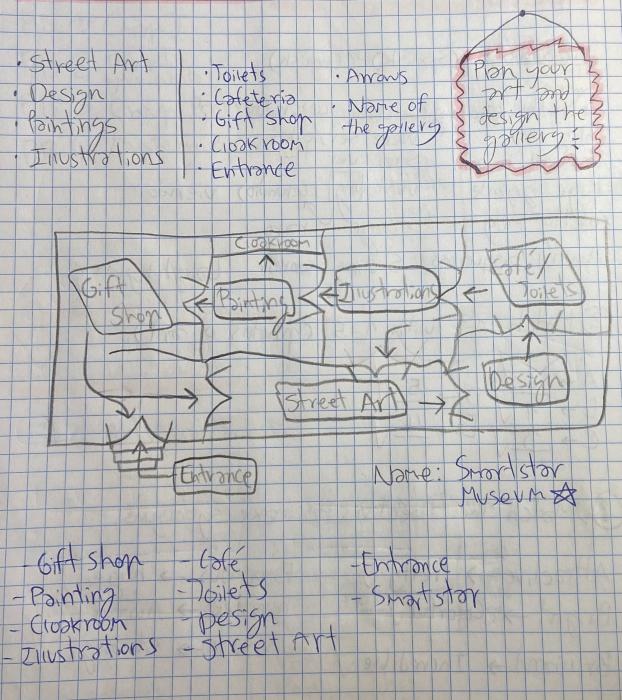 • Street Art
• Design
• Paintings
• Illustrations
• Toilets
• Cafeteria
• Gift Shop
• Cloakroom
• Entrance
• Arrows
• Name of
the gallery
Plan your
art and
design the
gallery:
Cloakroom
Gift
Shop
Painting
Illustrations
Café/
Toilets
Street Art
Design
Entrance
Name: Smartstar
Museum
- Gift Shop
- Painting
- Cloakroom
- Illustrations
- Café
- Toilets
- Design
- Street Art
- Entrance
- Smartstar